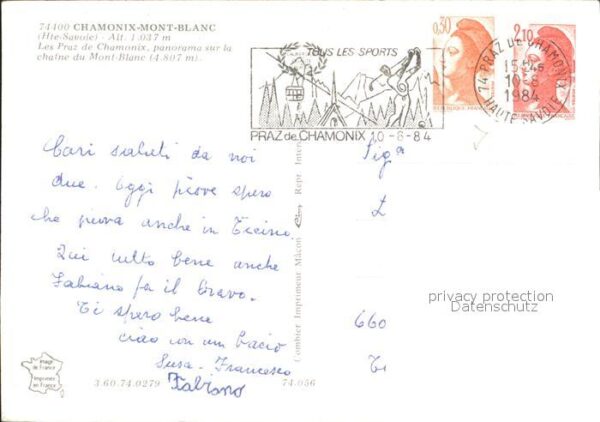 74400 CHAMONIX-MONT-BLANC
(Hte-Savoie) - Alt. 1.037 m
Les Praz de Chamonix, panorama sur la
chaîne du Mont-Blanc (4.807 m).
TOUS LES SPORTS
PRAZ de CHAMONIX 10-8-84
0,30
2,10
74 PRAZ DE CHAMONIX
10-8
1984
HAUTE SAVOIE
Cari saluti da noi
due. Oggi piove spero
che piova anche in Ticino.
Qui tutto bene anche
Fabiano fa il bravo.
Ti spero bene
ciao con un bacio
Susa - Francesco
Fabiano
Combier Imprimeur Mâcon
Repr. Inter
Sig.ª
L
660
Ti
privacy protection
Datenschutz
image
de France
Imprimée
en France
3.60.74.0279
74.056